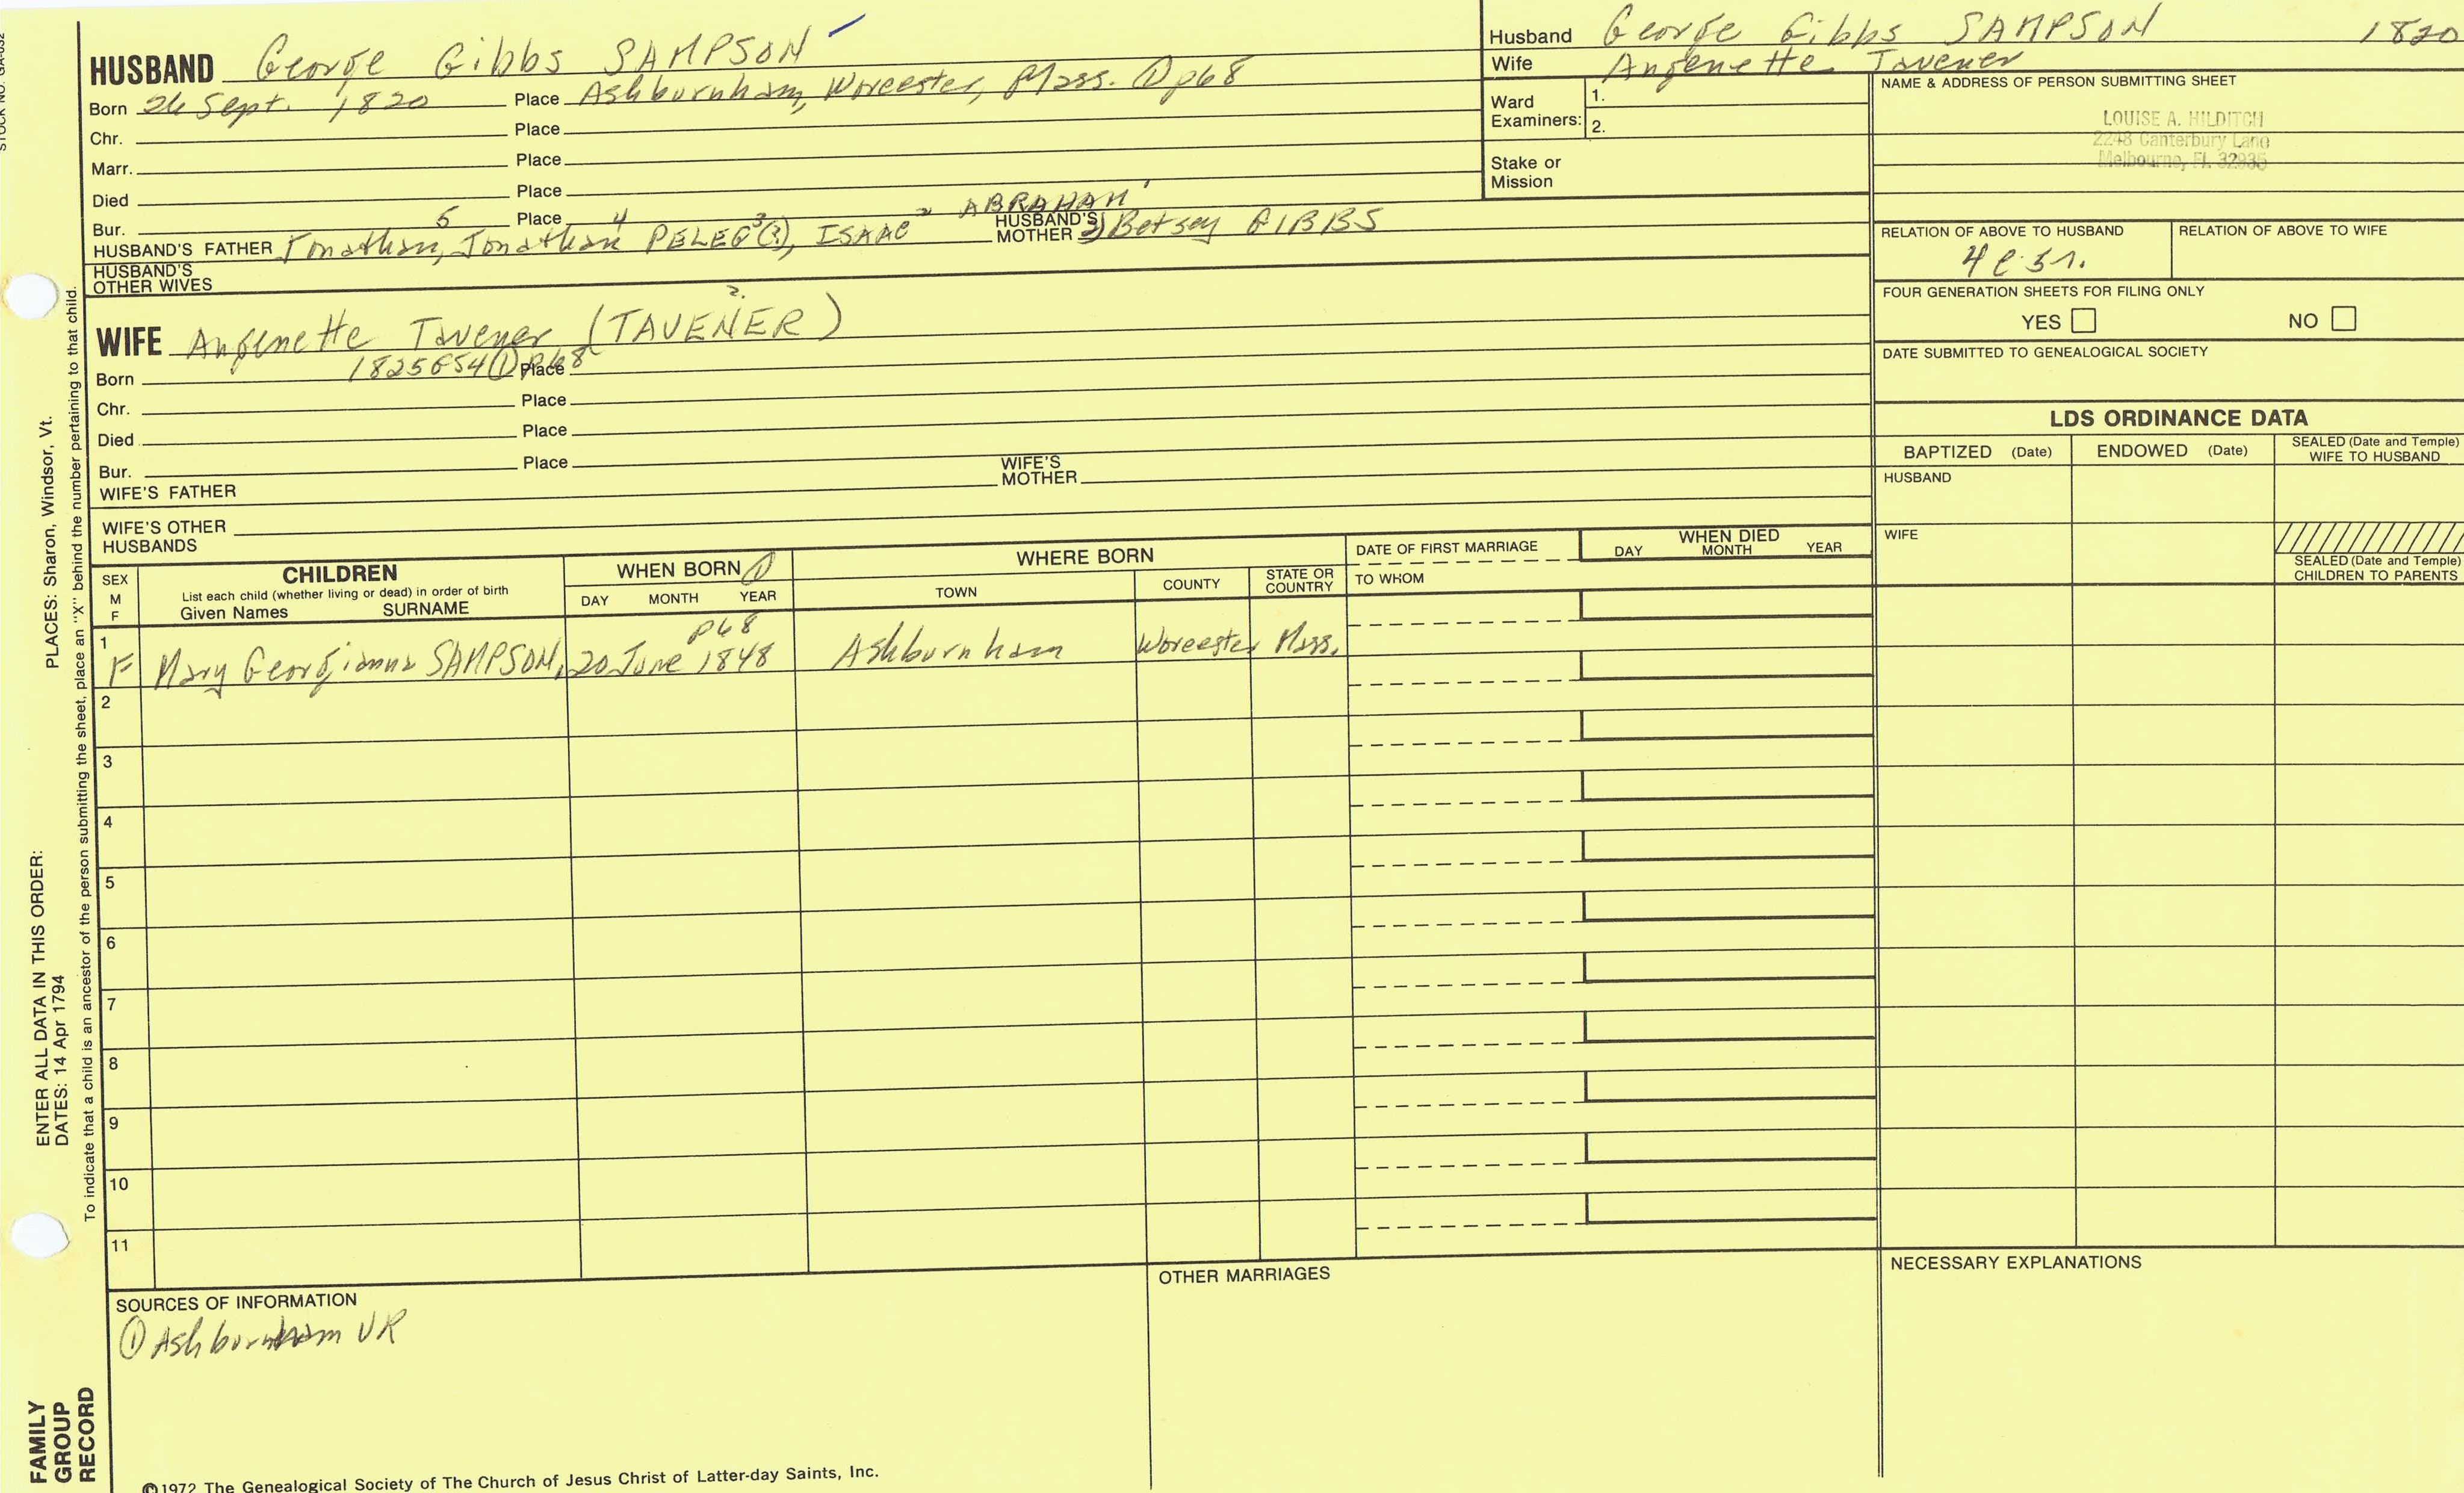 HUSBAND George Gibbs SAMPSON
Born 26 Sept. 1820 Place Ashburnham, Worcester, Mass. ① p68
Chr. Place
Marr. Place
Died Place
Bur. Place
HUSBAND'S FATHER Jonathan 5, Jonathan 4 PELEG 3(?), ISAAC 2 ABRAHAM 1 HUSBAND'S MOTHER 2) Betsey GIBBS
HUSBAND'S OTHER WIVES
Husband George Gibbs SAMPSON 1820
Wife Angenette Tavener
Ward Examiners: 1.
2.
Stake or Mission
NAME & ADDRESS OF PERSON SUBMITTING SHEET
LOUISE A. HILDITCH
2248 Canterbury Lane
Melbourne, Fl. 32935
RELATION OF ABOVE TO HUSBAND
RELATION OF ABOVE TO WIFE
FOUR GENERATION SHEETS FOR FILING ONLY
YES NO
DATE SUBMITTED TO GENEALOGICAL SOCIETY
WIFE Angenette Tavener (TAVENER) 2.
Born 1825 ① p68 Place
Chr. Place
Died Place
Bur. Place
WIFE'S FATHER WIFE'S MOTHER
WIFE'S OTHER HUSBANDS
LDS ORDINANCE DATA
BAPTIZED (Date) ENDOWED (Date) SEALED (Date and Temple) WIFE TO HUSBAND
HUSBAND
WIFE
SEALED (Date and Temple) CHILDREN TO PARENTS
SEX M F
CHILDREN
List each child (whether living or dead) in order of birth
Given Names SURNAME
WHEN BORN ①
DAY MONTH YEAR
WHERE BORN
TOWN COUNTY STATE OR COUNTRY
DATE OF FIRST MARRIAGE
TO WHOM
WHEN DIED
DAY MONTH YEAR
p68
1 F Mary Georgianna SAMPSON, 20 June 1848 Ashburnham Worcester Mass.
2
3
4
5
6
7
8
9
10
11
SOURCES OF INFORMATION
① Ashburnham VR
OTHER MARRIAGES
NECESSARY EXPLANATIONS
©1972 The Genealogical Society of The Church of Jesus Christ of Latter-day Saints, Inc.
PLACES: Sharon, Windsor, Vt.
ENTER ALL DATA IN THIS ORDER:
DATES: 14 Apr 1794
To indicate that a child is an ancestor of the person submitting the sheet, place an "X" behind the number pertaining to that child.
FAMILY GROUP RECORD